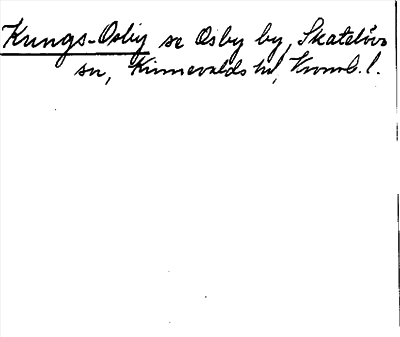 Kungs-Osby se Osby by, Skatelövs
sn, Kinnevalds hd, Kronob. l.